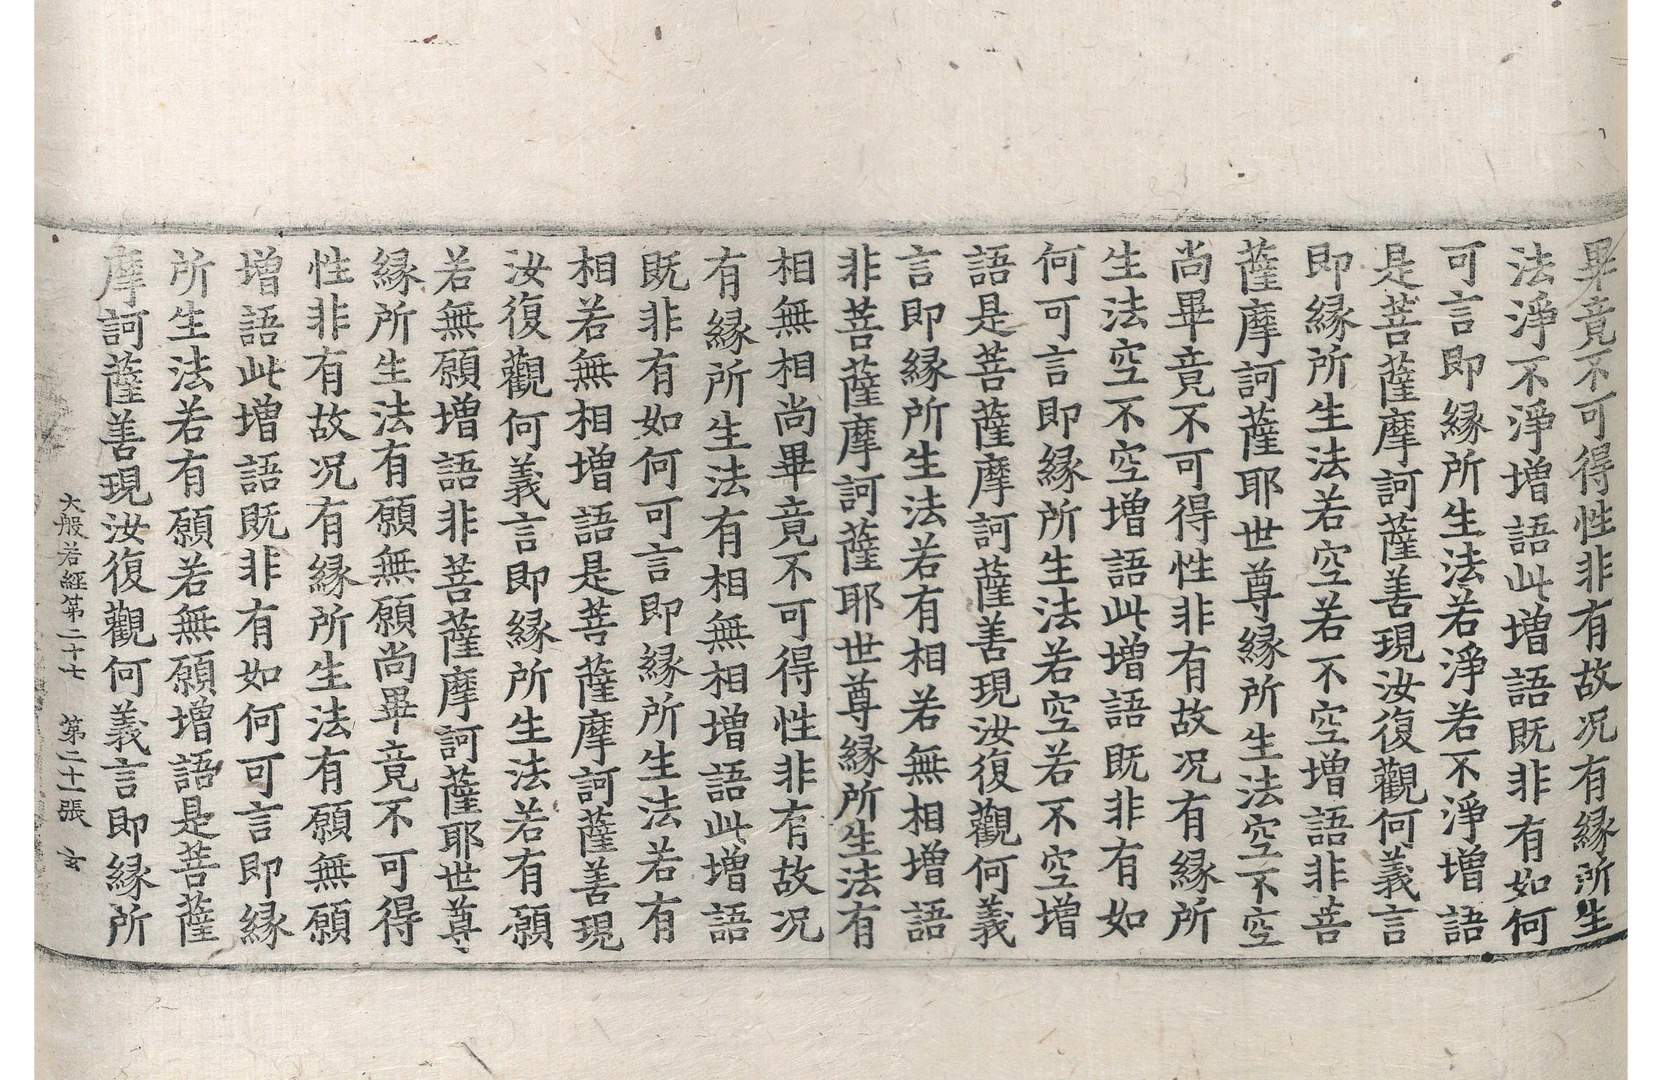 畢竟不可得性非有故况有縁所生
法淨不淨增語此增語既非有如何
可言即縁所生法若淨若不淨增語
是菩薩摩訶薩善現汝復觀何義言
即縁所生法若空若不空增語非菩
薩摩訶薩耶世尊縁所生法空不空
尚畢竟不可得性非有故况有縁所
生法空不空增語此增語既非有如
何可言即縁所生法若空若不空增
語是菩薩摩訶薩善現汝復觀何義
言即縁所生法若有相若無相增語
非菩薩摩訶薩耶世尊縁所生法有
相無相尚畢竟不可得性非有故况
有縁所生法有相無相增語此增語
既非有如何可言即縁所生法若有
相若無相增語是菩薩摩訶薩善現
汝復觀何義言即縁所生法若有願
若無願增語非菩薩摩訶薩耶世尊
縁所生法有願無願尚畢竟不可得
性非有故况有縁所生法有願無願
增語此增語既非有如何可言即縁
所生法若有願若無願增語是菩薩
摩訶薩善現汝復觀何義言即縁所
大般若經第二十七 第二十一張 玄